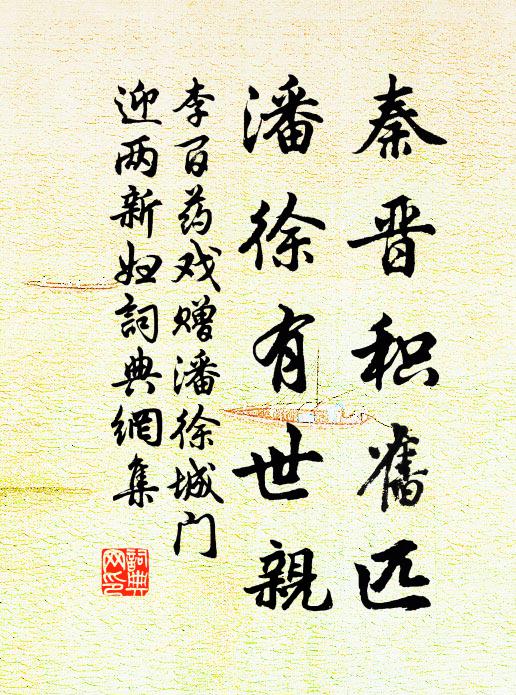 秦晋积舊匹
潘徐有世親
李百药戏赠潘徐城门
迎两新妇詞典網集
詞典
网印